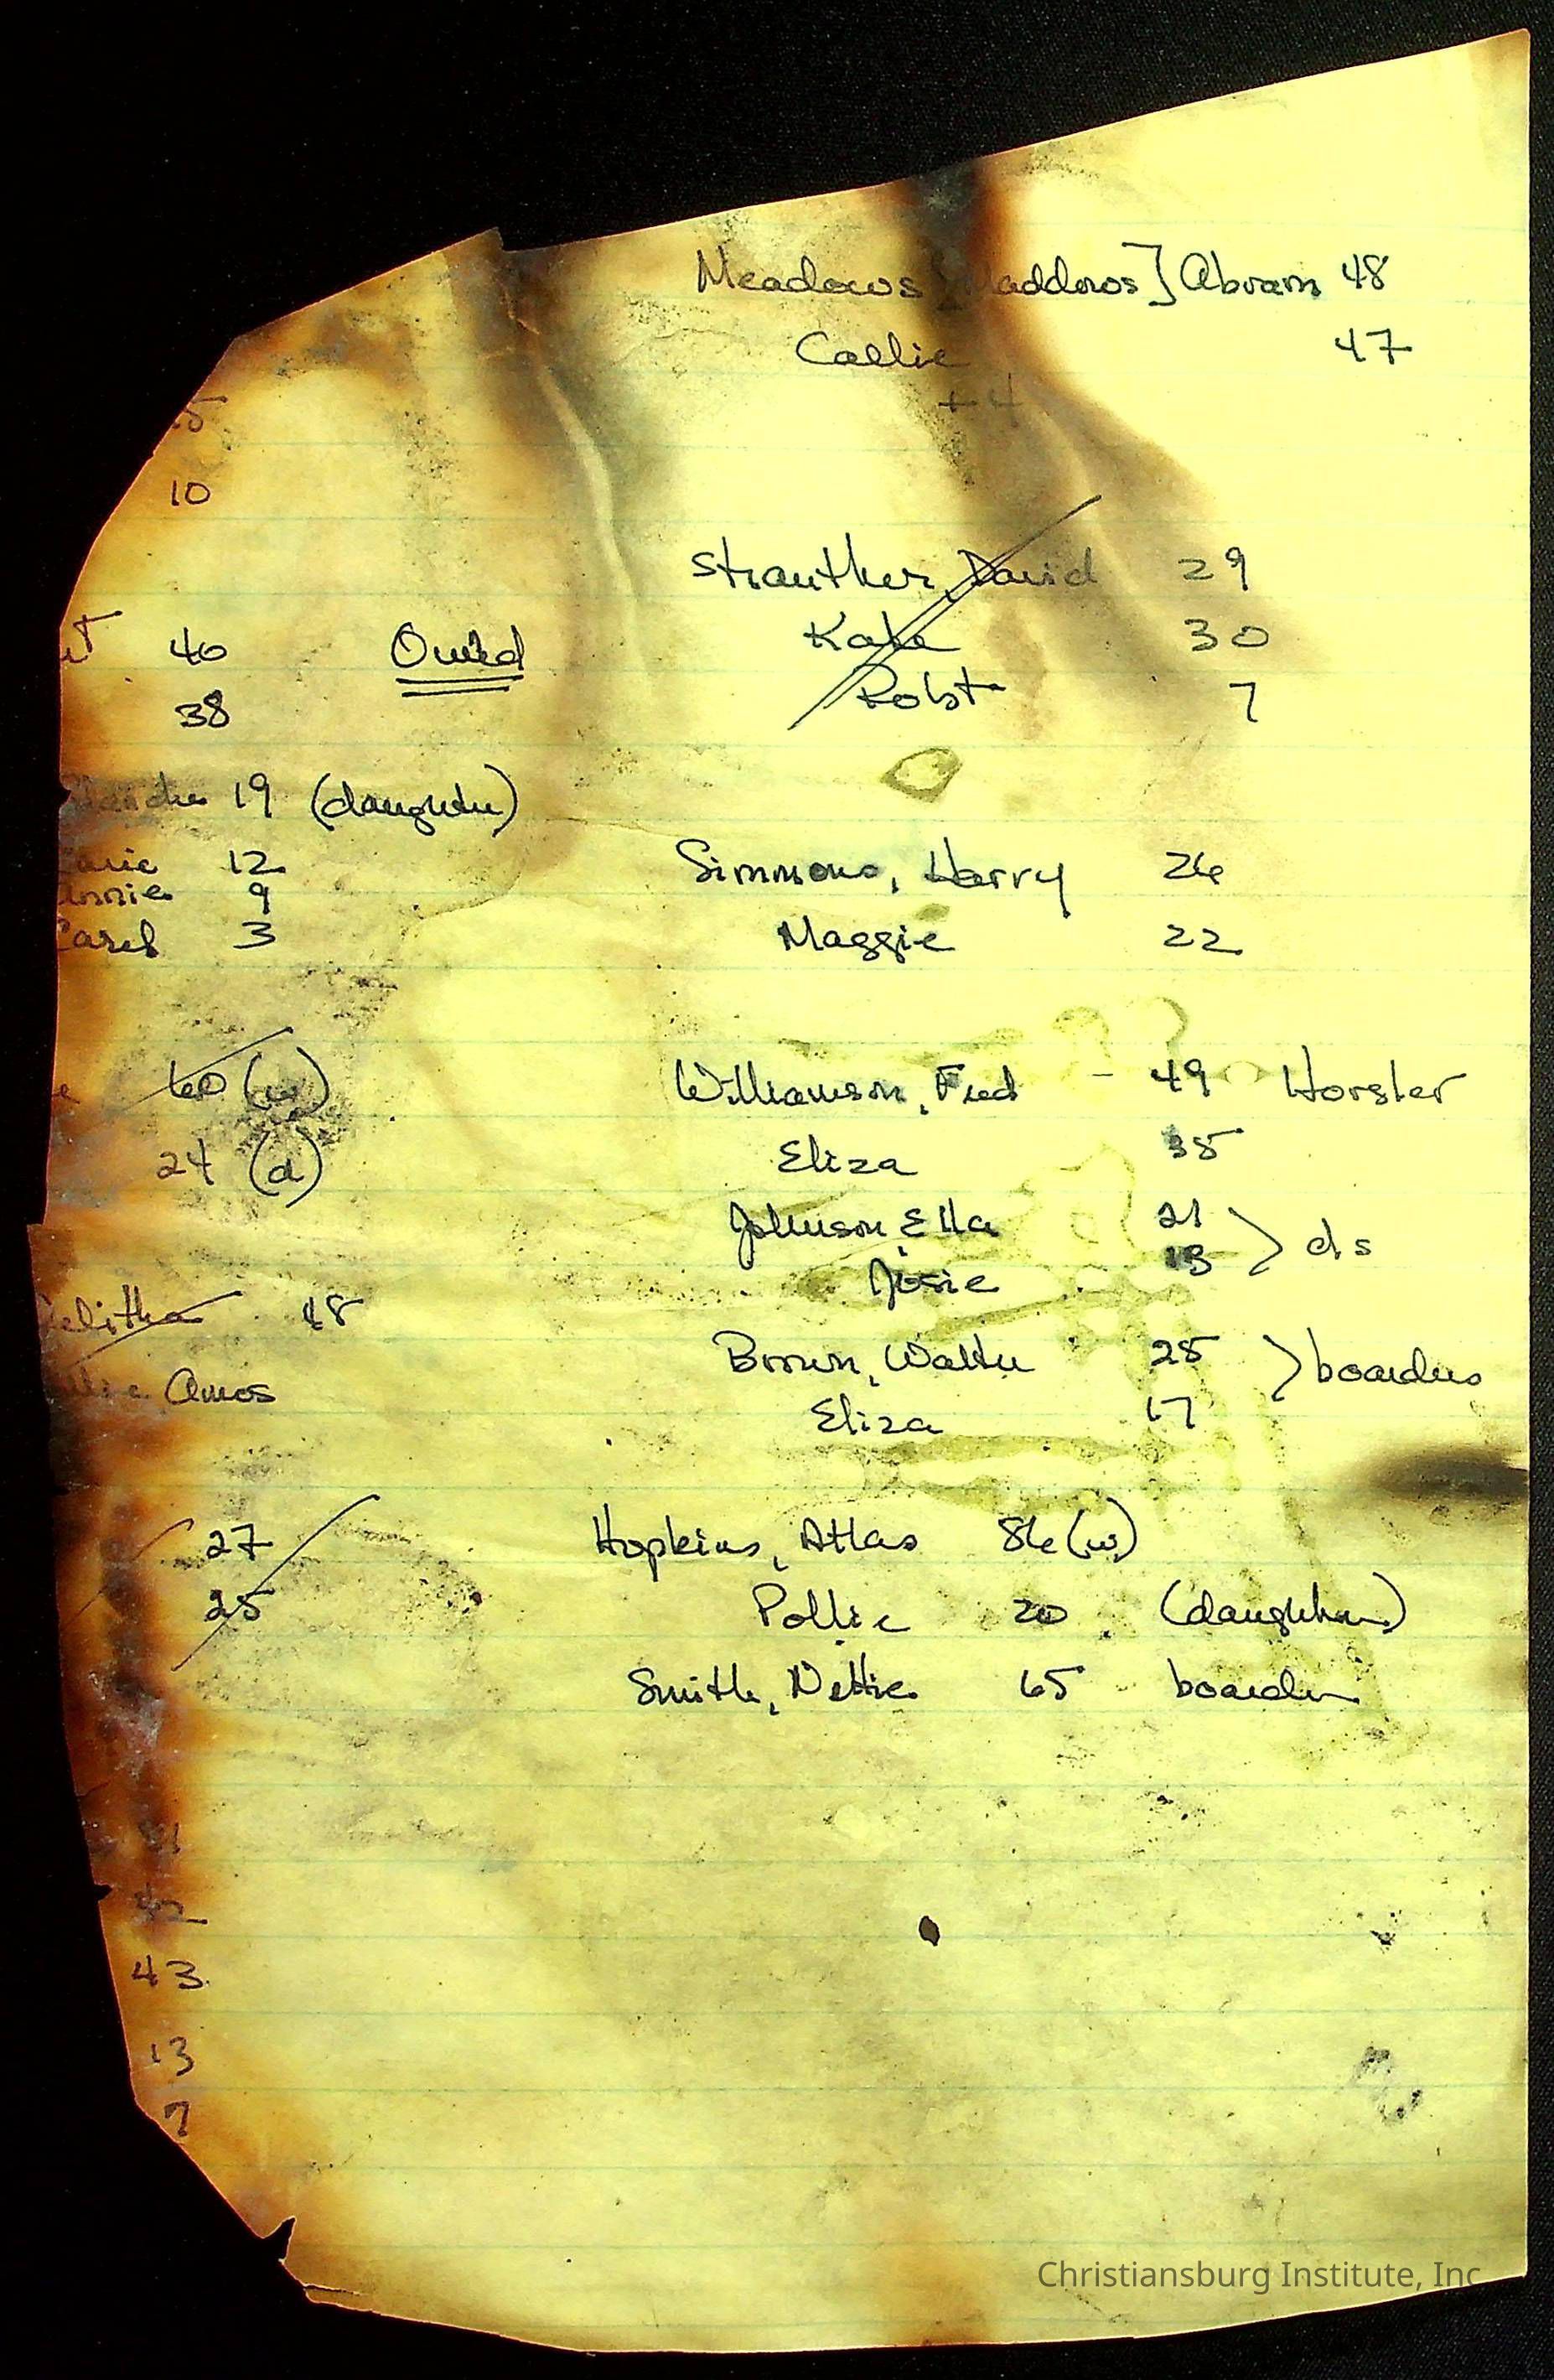 Meadows [Maddows] Abram 48
Callie 47
+4
10
Strauther, David 29
40 Owned
Kate 30
38
Robt 7
19 (daughter)
Simmons, Harry 26
12
Annie 9
Maggie 22
3
60 (w)
Williamson, Fred - 49 Horsler
24 (d)
Eliza 35
Johnson, Ella 21
Josie 13 > ds
48
Amos
Brown, Walter 25
Eliza 17 > boarders
27
Hopkins, Atlas 86 (w)
25
Pollie 20 (daughter)
Smith, Nettie 65 boarder
43
13
7
Christiansburg Institute, Inc